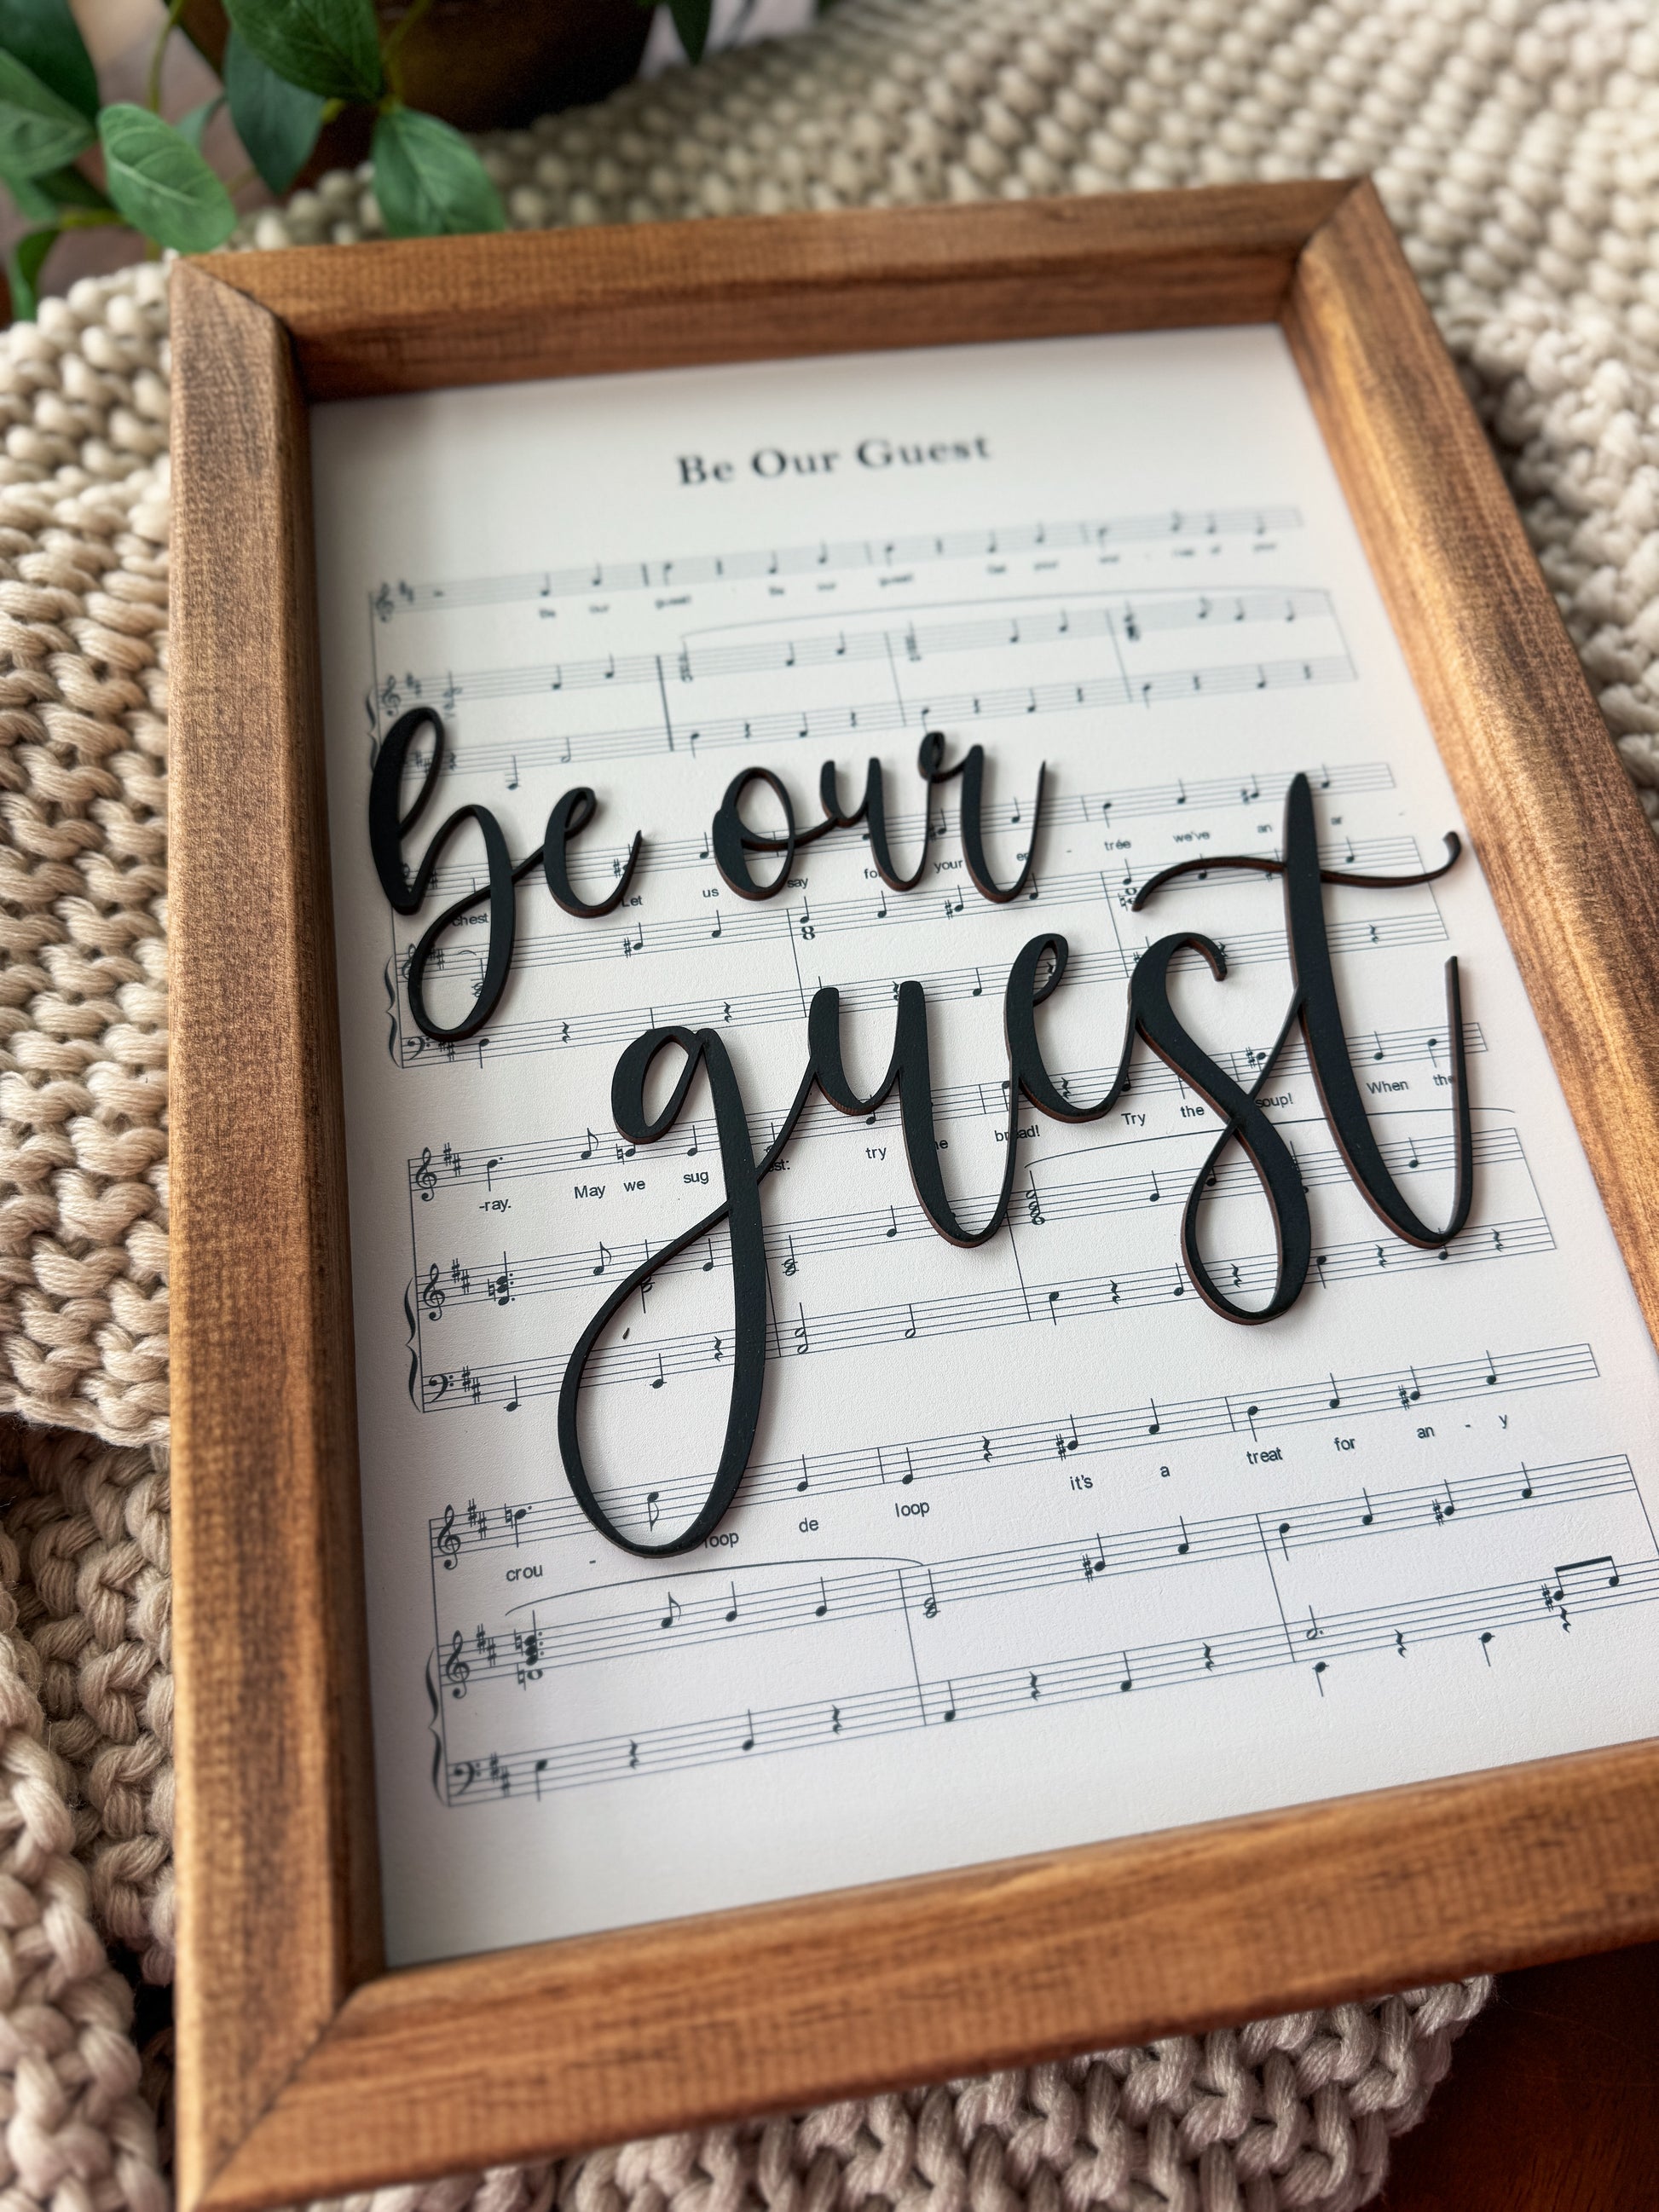 Be Our Guest
Be our guest! Be our guest! Put your
be our
chest Let us say your trée we've an ar -
guest
-ray. May we sug try bread! Try the soup! When the
crou - loop de loop it's a treat for an - y